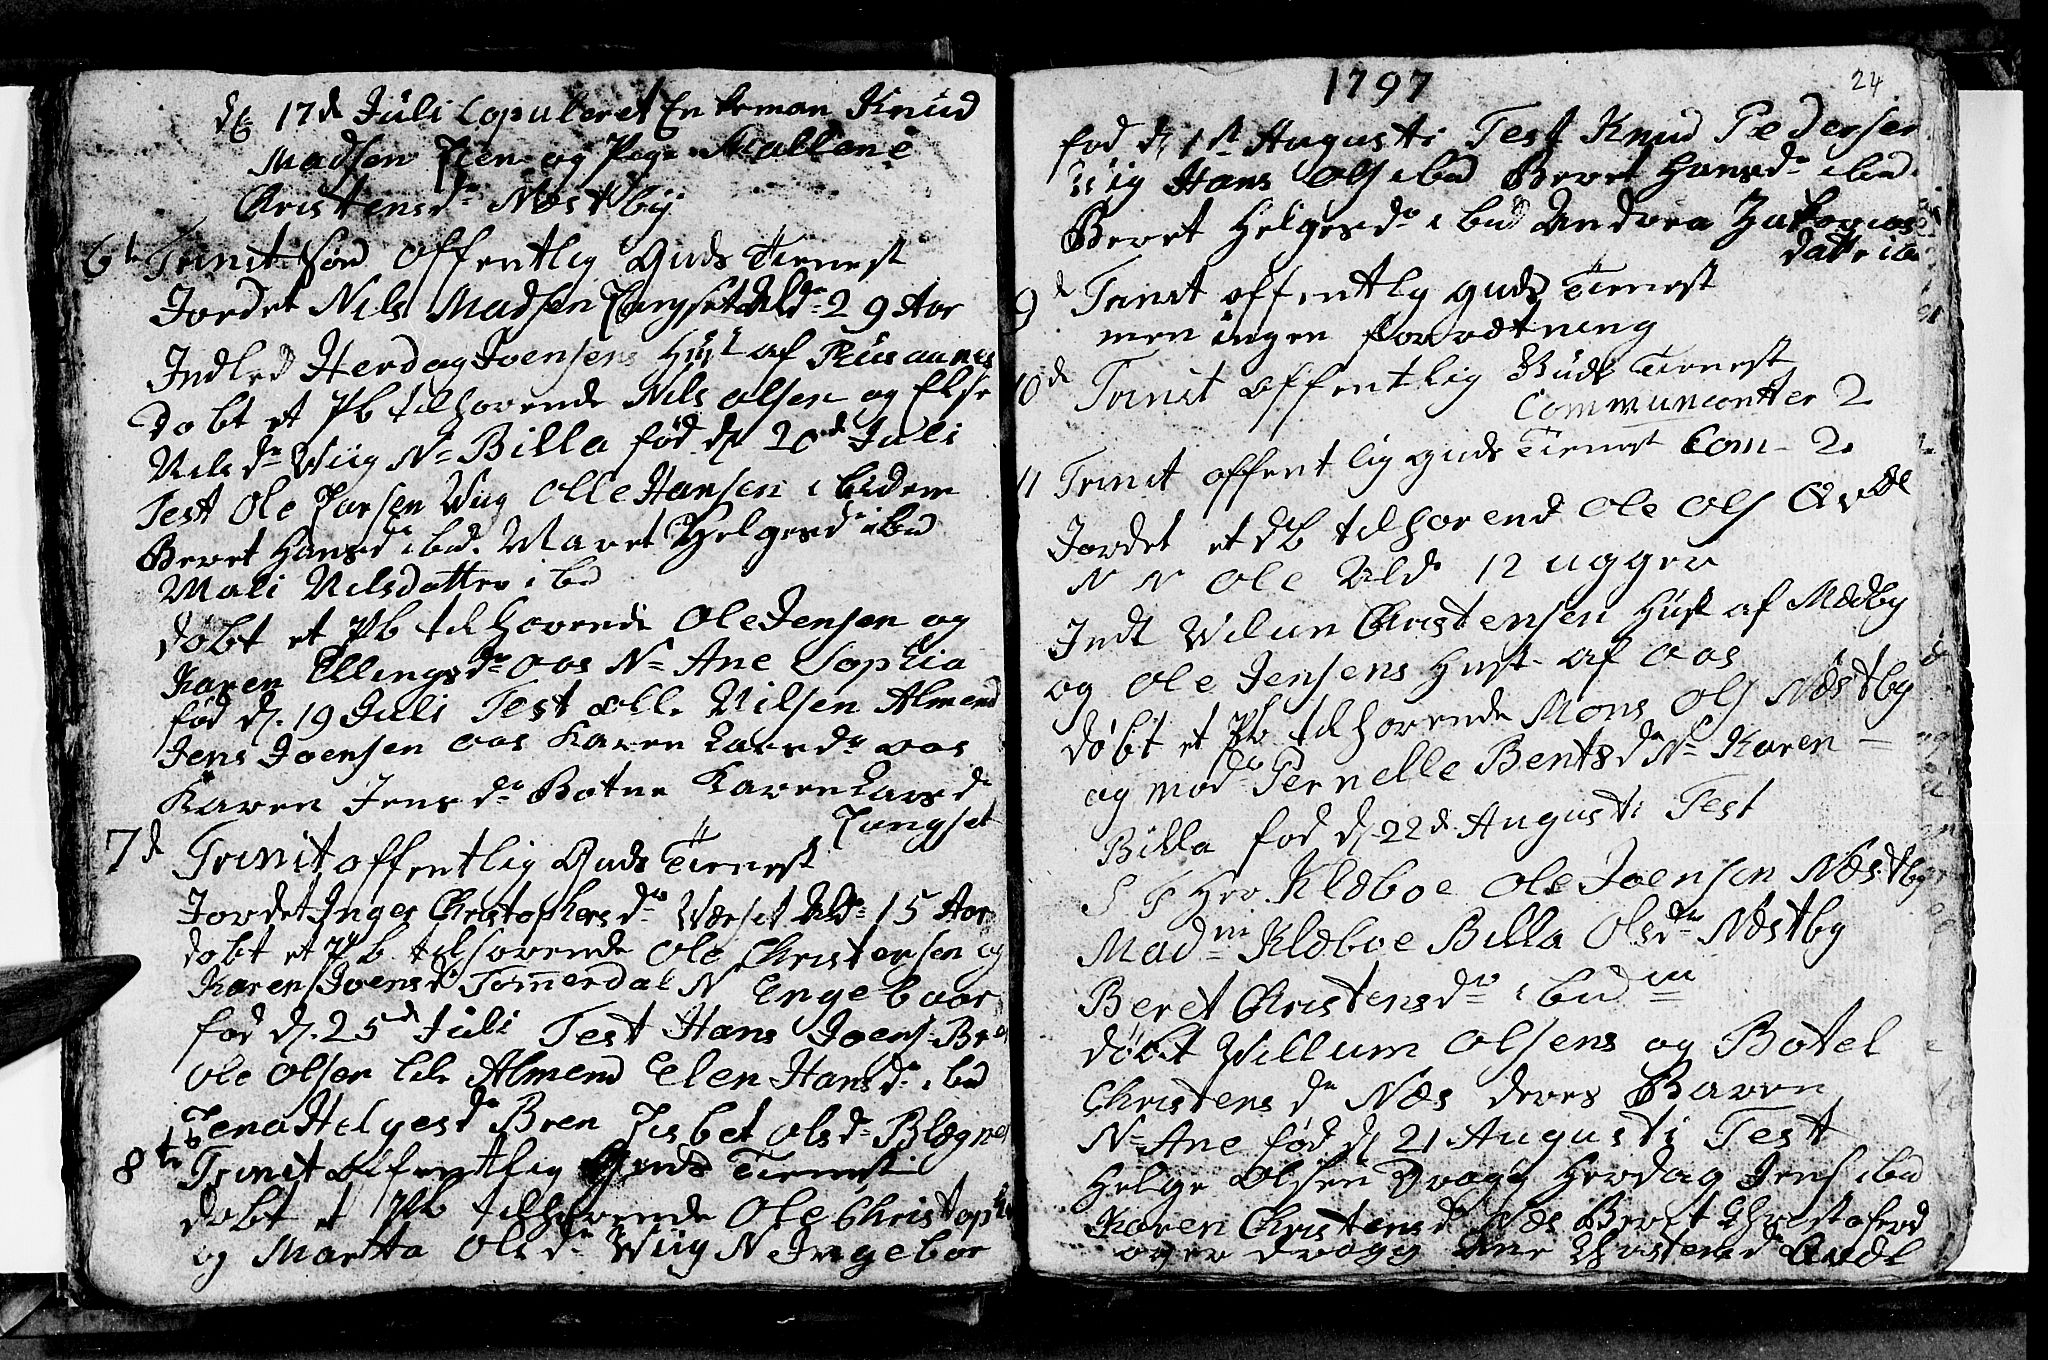 d. 17de Juli Copuleret Enkeman Knud
Madsen og Pige Mallene
Christensd. Næstby
6te Trinit Sønd offentlig Guds Tienest
Jordet Nils Madsen Ald. 29 Aar
Indled Herdag Joensens Hust af
døbt et Pb tilhørende Nils Olsen og Else
Nilsd. Wiig N. Billa fød d. 20d Juli
Test Ole Larsen Wiig Olle Hansen ibidem
Beret Hansd ibid. Maret Helgesd ibid
Mali Nilsdatter ibd
døbt et Pb tilhørende Ole Jensen og
Karen Ellingsd. Aas N. Ane Sophia
fød d. 19 Juli Test Olle Nilsen Almend
Jens Joensen Aas Karen Larsd. Aas
Karen Jensd. Botne Karen Larsd
Langset
7d Trinit offentlig Guds Tienest
Jordet Inger Christophersd. Værset Ald. 15 Aar
døbt et Pb tilhørende Ole Christensen og
Karen Joensd Tømmerdal N Engeboor
fød d. 25d Juli Test Hans Joens. Bre
Ole Olsen lille Almend Elen Hansd. ibid
Lena Helgesd Bren Lisbet Olsd. Blægn
8te Trinit offentlig Guds Tienest
døbt et Pb tilhørende Ole Christoph
og Martta Olsd. Wiig N Ingebor
1797
24
fød d. 1st Augusti Test Knud Pedersen
Wiig Hans Ols ibid Beret Hansd. ibid
Beret Helgesd. ibid Andrea Zakarias
datter ib
9d Trinit offentlig Guds Tienest
men ingen forrætning
10d Trinit offentlig Guds Tienest
Communicantter 2
11 Trinit offentlig Guds Tienest Com. 2
Jordet et db tilhørend Ole Ols
N N Ole Ald. 12 ugger
Indl Wilum Christensen Hust af Mælby
og Ole Jensens Hust. af Aas
døbt et Pb tilhørende Mons Ols Næstby
og mod. Pernelle Bentsd N. Karen
Billa fød d. 22d. Augusti Test
S T Her Klæboe Ole Joensen Næstby
Madm Klæboe Billa Olsd. Næstby
Beret Christensd. ibidm
døbt Willum Olsens og Botel
Christensd. Næs deres Baren
N. Ane fød d. 21 Augusti Test
Helge Olsen Dragg Herdag Jens ibid
Karen Christensd. Næs Beret Christoferd
over Dragg Ane Christensd.